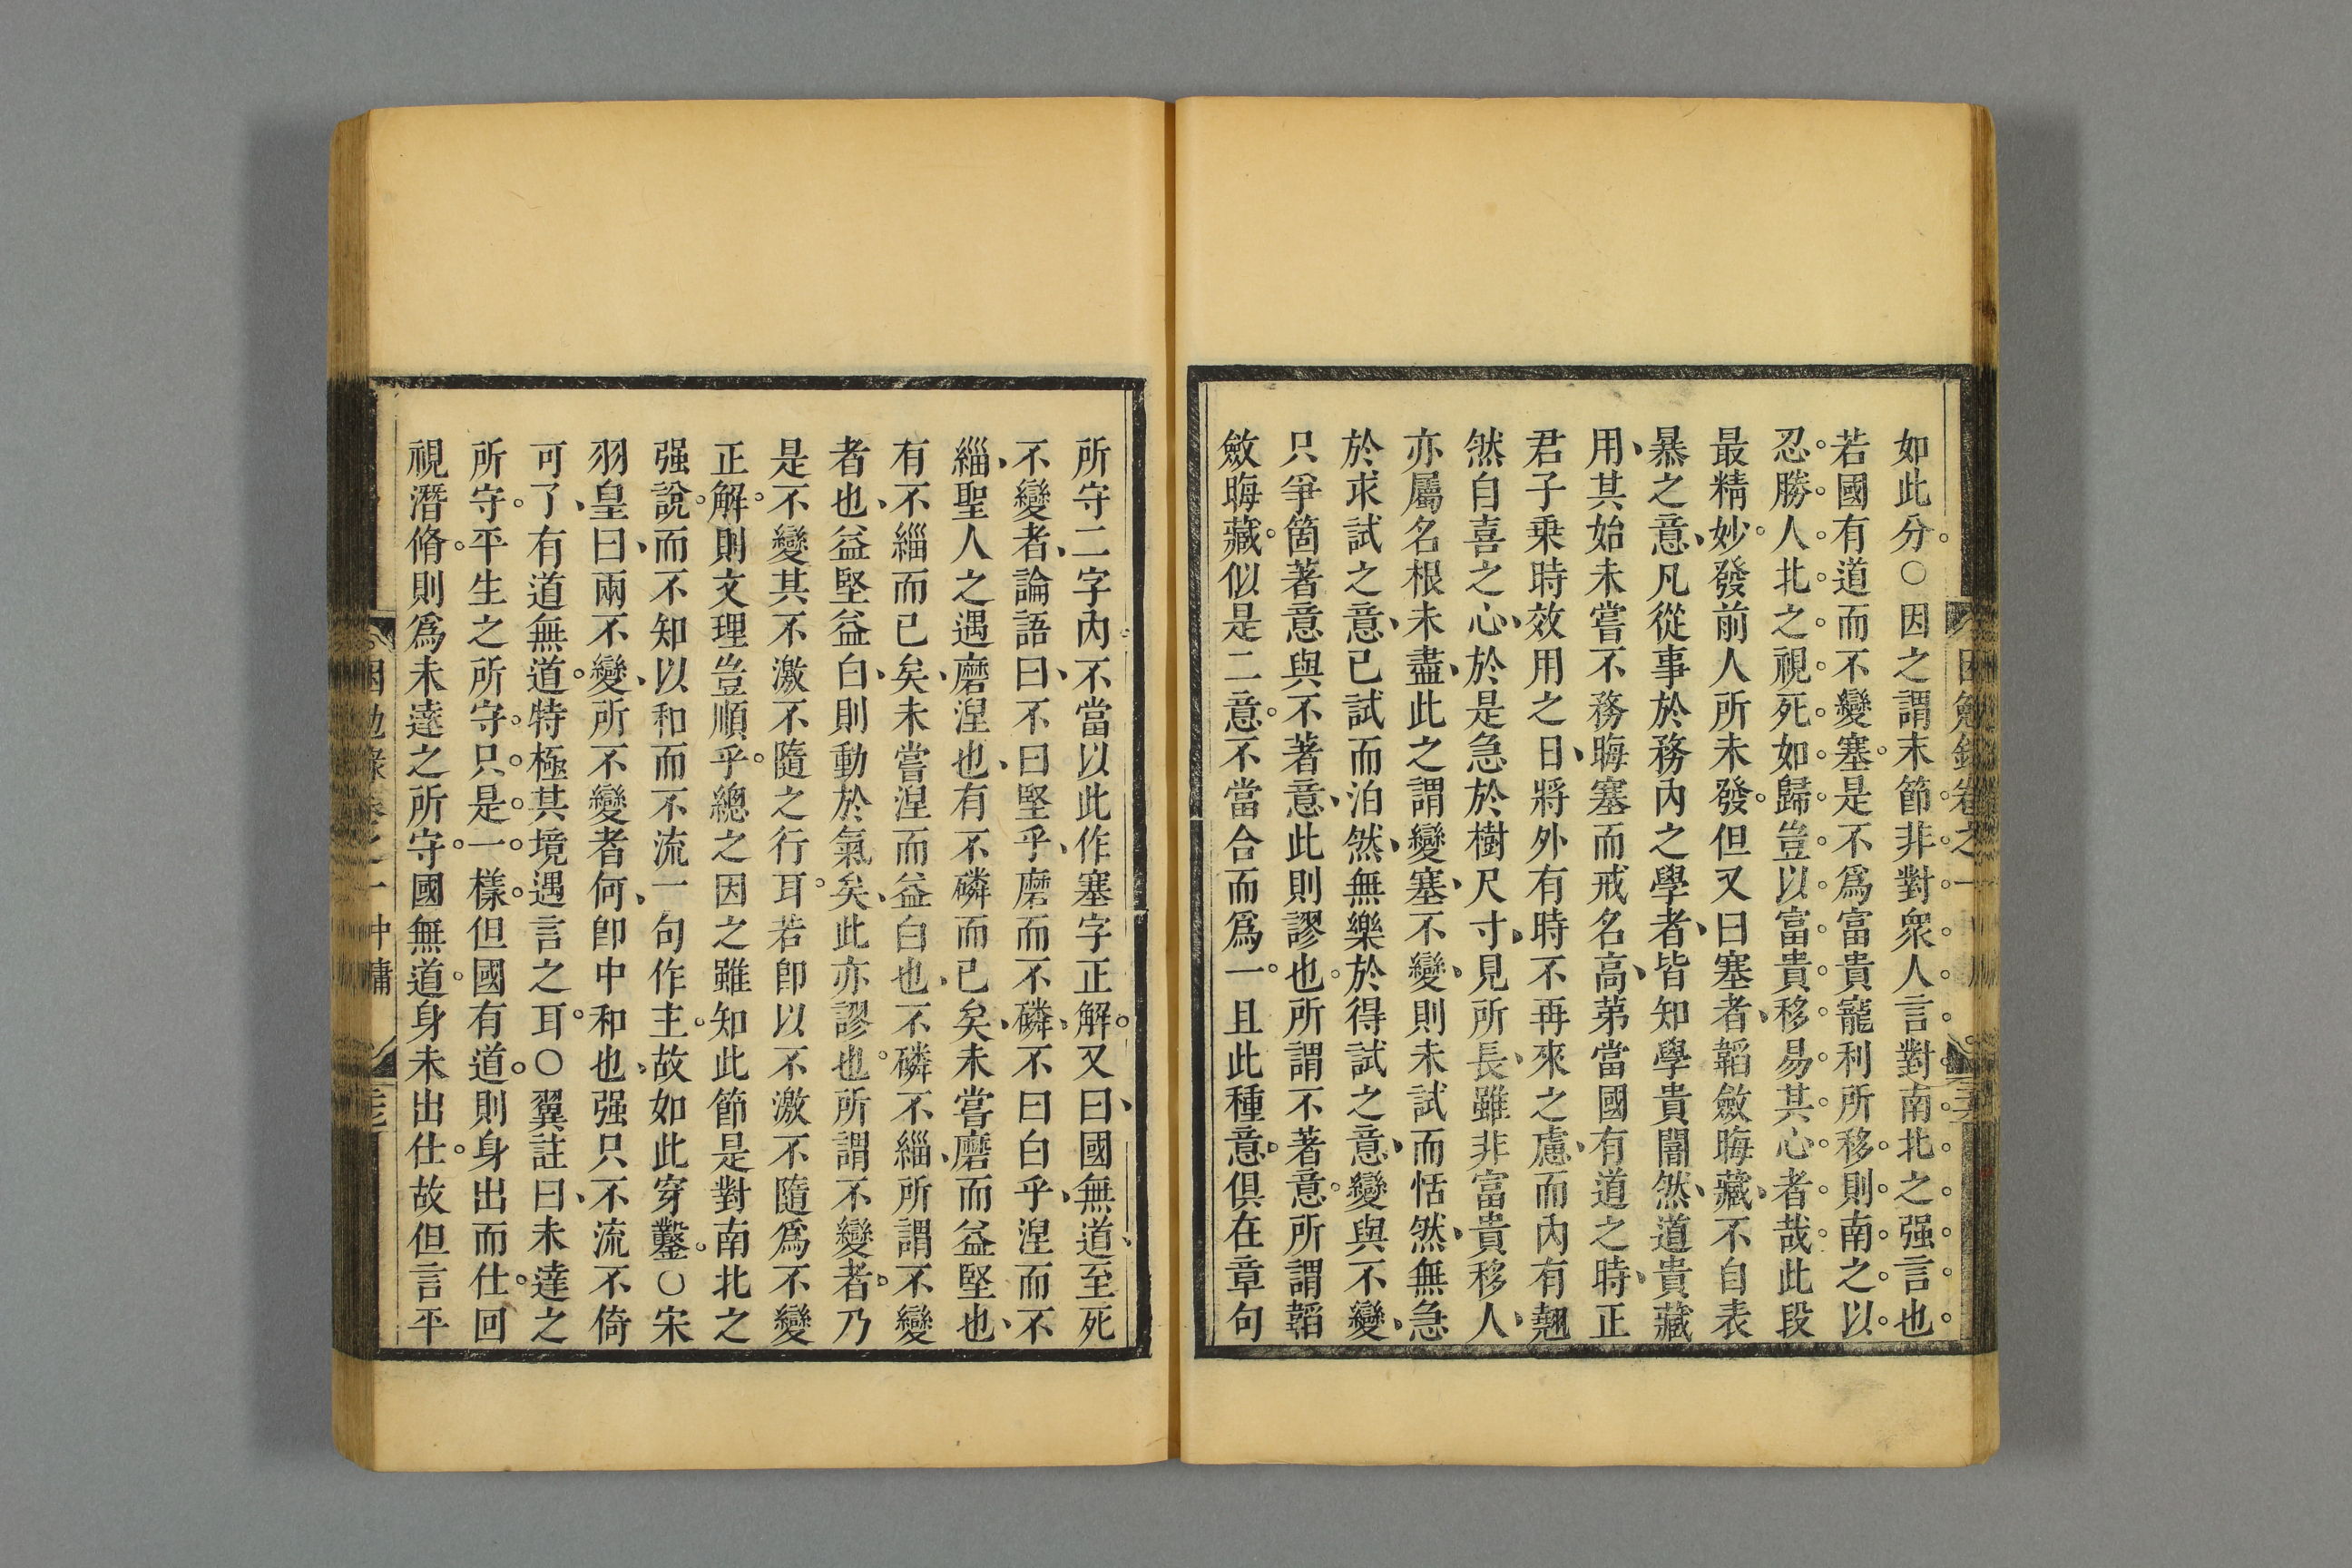 如此分。○因之謂末節。非對衆人言。對南北之强言也。
若國有道而不變塞。是不爲富貴寵利所移。則南之以
忍勝人。北之視死如歸。豈以富貴移易其心者哉。此段
最精妙。發前人所未發。但又曰塞者、韜斂晦藏、不自表
暴之意、凡從事於務内之學者、皆知學貴闇然、道貴藏
用、其始未嘗不務晦塞而戒名高、苐當國有道之時、正
君子乗時效用之日、將外有時不再來之慮、而内有翹
然自喜之心、於是急於樹尺寸、見所長、雖非富貴移人、
亦屬名根未盡、此之謂變塞、不變、則未試而恬然、無急
於求試之意、已試而泊然、無樂於得試之意、變與不變、
只爭箇著意與不著意、此則謬也。所謂不著意。所謂韜
斂晦藏。似是二意。不當合而爲一。且此種意、俱在章句
困勉錄卷之一
所守二字内、不當以此作塞字正解。又曰、國無道、至死
不變者、論語曰、不曰堅乎、磨而不磷、不曰白乎、涅而不
緇、聖人之遇磨涅也、有不磷而已矣、未嘗磨而益堅也、
有不緇而已矣、未嘗涅而益白也、不磷不緇、所謂不變
者也、益堅益白、則動於氣矣、此亦謬也。所謂不變者。乃
是不變其不激不隨之行耳。若卽以不激不隨爲不變
正解。則文理豈順乎。總之因之雖知此節是對南北之
强說。而不知以和而不流一句作主。故如此穿鑿。○宋
羽皇曰、兩不變、所不變者何、卽中和也、强只不流不倚
可了、有道無道。特極其境遇言之耳。○翼註曰、未達之
所守。平生之所守。只是一樣。但國有道。則身出而仕。回
視潛脩。則爲未達之所守。國無道。身未出仕。故但言平
困勉錄卷之一 中庸